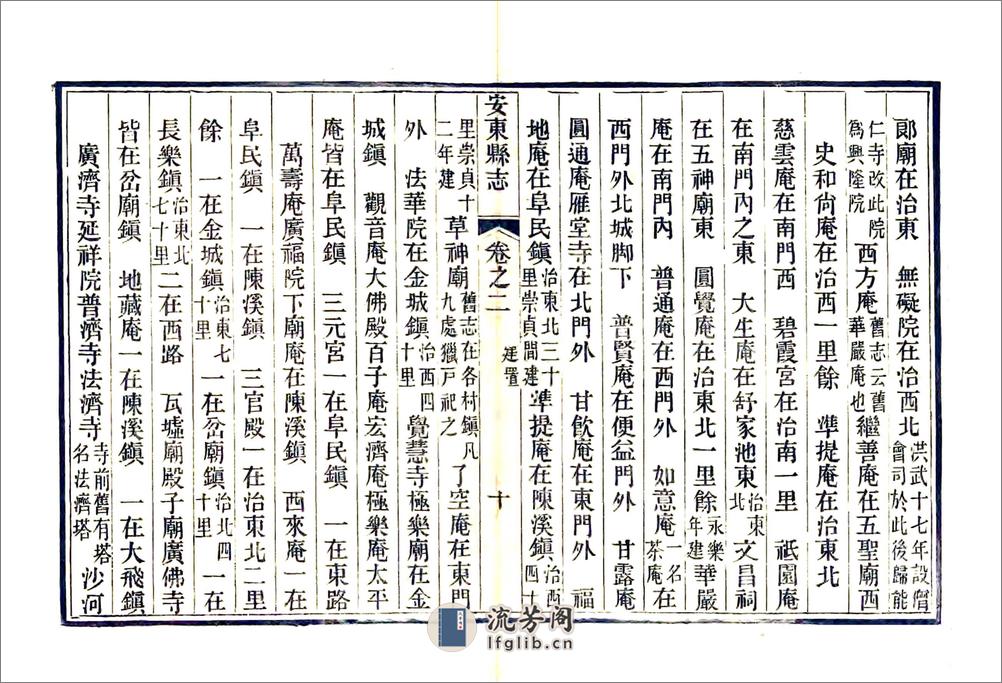 郞廟在治東　無礙院在治西北洪武十七年設僧會司於此後歸能
仁寺改此院爲興隆院　西方庵舊志云舊華嚴庵也繼善庵在五聖廟西
史和尚庵在治西一里餘　準提庵在治東北
慈雲庵在南門西　碧霞宮在治南一里　祇園庵
在南門內之東　大生庵在舒家池東治東北　文昌祠
在五神廟東　圓覺庵在治東北一里餘永樂年建華嚴
庵在南門內　普通庵在西門外　如意庵一名茶庵在
西門外北城脚下　普賢庵在便益門外　甘露庵
圓通庵雁堂寺在北門外　甘飲庵在東門外　福
地庵在阜民鎭治東北三十里崇貞間建準提庵在陳溪鎭治西四十
安東縣志　卷之二　建置　十
里崇貞十二年建　草神廟舊志在各村鎭凡九處獵戸祀之　了空庵在東門
外　法華院在金城鎭治西四十里　覺慧寺極樂廟在金
城鎭　觀音庵大佛殿百子庵宏濟庵極樂庵太平
庵皆在阜民鎭　三元宮一在阜民鎭　一在東路
萬壽庵廣福院下廟庵在陳溪鎭　西來庵一在
阜民鎭　一在陳溪鎭　三官殿一在治東北二里
餘　一在金城鎭治東七十里　一在岔廟鎭治北四十里　一在
長樂鎭治東北七十里　二在西路　瓦墟廟殿子廟廣佛寺
皆在岔廟鎭　地藏庵一在陳溪鎭　一在大飛鎭
廣濟寺延祥院普濟寺法濟寺寺前舊有塔名法濟塔　沙河
流芳阁
lfglib.cn